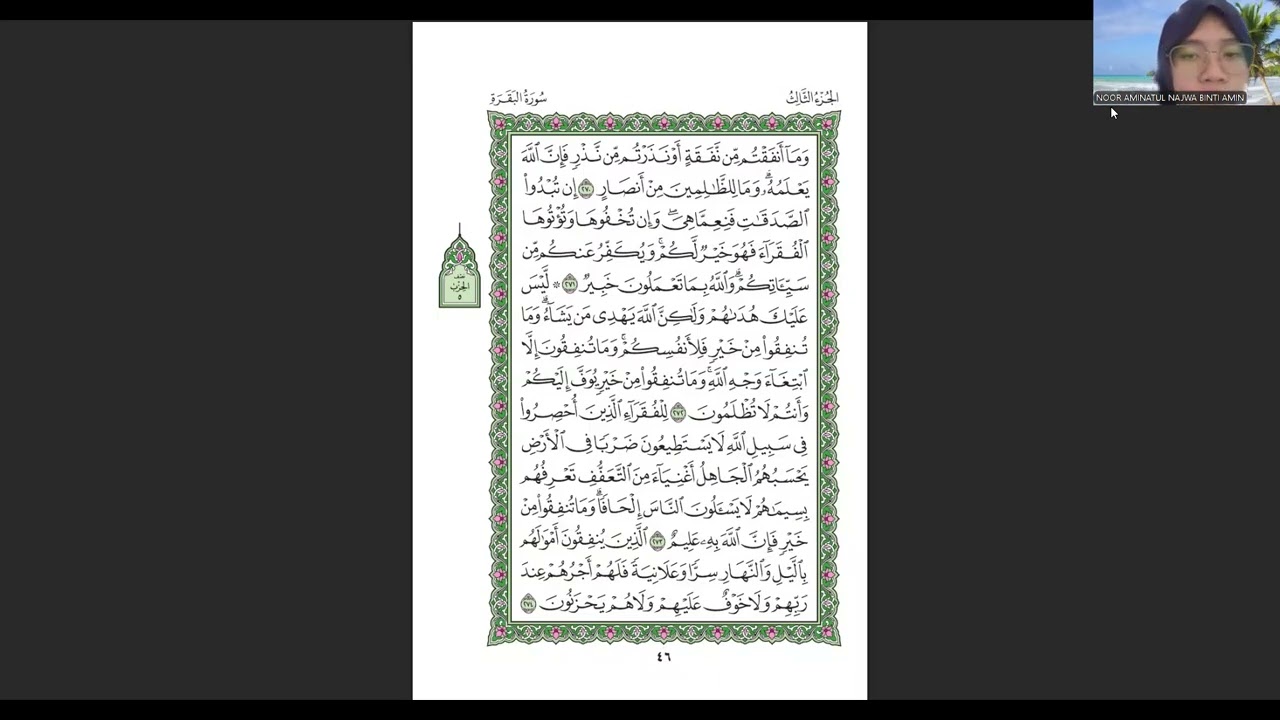 NOOR AMINATUL NAJWA BINTI AMIN
الجُزْءُ الثَّالِثُ
سُورَةُ البَقَرَةِ
وَمَآ أَنفَقْتُم مِّن نَّفَقَةٍ أَوْ نَذَرْتُم مِّن نَّذْرٍ فَإِنَّ ٱللَّهَ
يَعْلَمُهُۥۗ وَمَا لِلظَّـٰلِمِينَ مِنْ أَنصَارٍ ٢٧٠ إِن تُبْدُوا۟
ٱلصَّدَقَـٰتِ فَنِعِمَّا هِىَۖ وَإِن تُخْفُوهَا وَتُؤْتُوهَا
ٱلْفُقَرَآءَ فَهُوَ خَيْرٌ لَّكُمْۚ وَيُكَفِّرُ عَنكُم مِّن
سَيِّـَٔاتِكُمْۗ وَٱللَّهُ بِمَا تَعْمَلُونَ خَبِيرٌ ٢٧١ ۞ لَّيْسَ
عَلَيْكَ هُدَىٰهُمْ وَلَـٰكِنَّ ٱللَّهَ يَهْدِى مَن يَشَآءُۗ وَمَا
تُنفِقُوا۟ مِنْ خَيْرٍ فَلِأَنفُسِكُمْۚ وَمَا تُنفِقُونَ إِلَّا
ٱبْتِغَآءَ وَجْهِ ٱللَّهِۚ وَمَا تُنفِقُوا۟ مِنْ خَيْرٍ يُوَفَّ إِلَيْكُمْ
وَأَنتُمْ لَا تُظْلَمُونَ ٢٧٢ لِلْفُقَرَآءِ ٱلَّذِينَ أُحْصِرُوا۟
فِى سَبِيلِ ٱللَّهِ لَا يَسْتَطِيعُونَ ضَرْبًا فِى ٱلْأَرْضِ
يَحْسَبُهُمُ ٱلْجَاهِلُ أَغْنِيَآءَ مِنَ ٱلتَّعَفُّفِ تَعْرِفُهُم
بِسِيمَـٰهُمْ لَا يَسْـَٔلُونَ ٱلنَّاسَ إِلْحَافًاۗ وَمَا تُنفِقُوا۟ مِنْ
خَيْرٍ فَإِنَّ ٱللَّهَ بِهِۦ عَلِيمٌ ٢٧٣ ٱلَّذِينَ يُنفِقُونَ أَمْوَٰلَهُم
بِٱلَّيْلِ وَٱلنَّهَارِ سِرًّا وَعَلَانِيَةً فَلَهُمْ أَجْرُهُمْ عِندَ
رَبِّهِمْ وَلَا خَوْفٌ عَلَيْهِمْ وَلَا هُمْ يَحْزَنُونَ ٢٧٤
الحِزْب
٥
٤٦